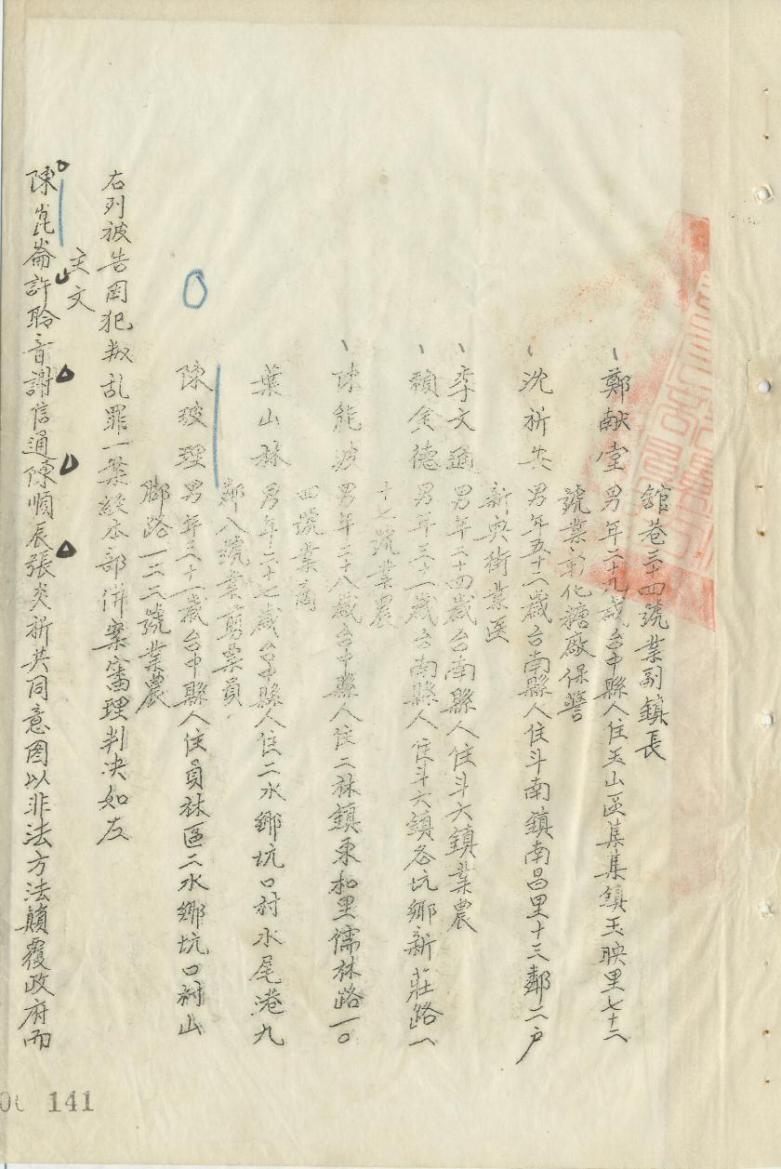 館巷三十四號業副鎮長
鄭献堂 男年二十九歲台中縣人住玉山區集集鎮玉映里七十二
號業彰化糖廠保警
沈祈 男年五十二歲台南縣人住斗南鎮南昌里十三鄰二戶
新興街業医
李文 男年二十四歲台南縣人住斗六鎮業農
賴金德 男年三十一歲台南縣人住斗六鎮 坑鄉新莊路一
十七號業農
陳能波 男年二十八歲台中縣人住二林鎮東和里儒林路一〇
四號業商
葉山林 男年二十七歲台中縣人住二水鄉坑口村水尾港九
鄰八號業剪票員
陳玻理 男年三十一歲台中縣人住員林區二水鄉坑口村山
腳路一三二號業農
右列被告因犯叛乱罪一案經本部併案審理判决如左
主文
陳崑崙許聆音謝信通陳順辰張炎祈共同意圖以非法方法顛覆政府而
141